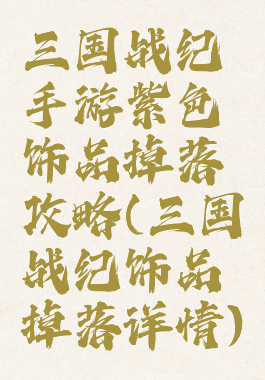 三国战纪
手游紫色
饰品掉落
攻略(三国
战纪饰品
掉落详情)